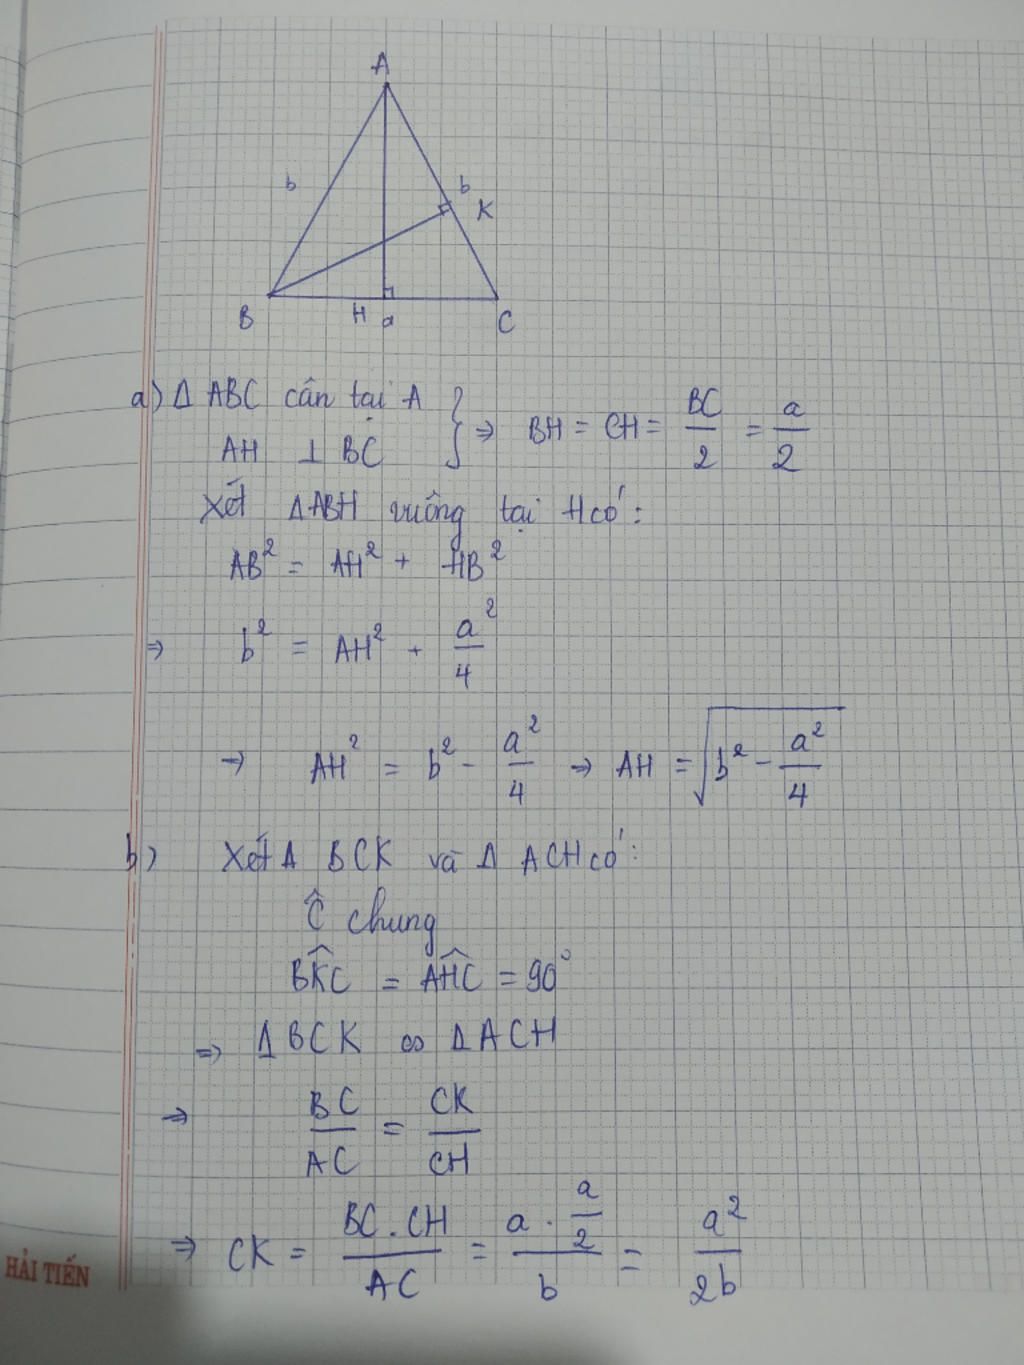 A
b
b
K
B
H
a
C
a) Δ ABC cân tại A
AH ⊥ BC } ⇒ BH = CH = BC/2 = a/2
Xét ΔABH vuông tại H có:
AB² = AH² + HB²
⇒ b² = AH² + a²/4
→ AH² = b² - a²/4 ⇒ AH = √(b² - a²/4)
b) Xét Δ BCK và Δ ACH có:
Ĉ chung
BK̂C = AĤC = 90°
⇒ Δ BCK ∽ Δ ACH
⇒ BC/AC = CK/CH
⇒ CK = BC.CH/AC = (a . a/2)/b = a²/2b
HẢI TIẾN